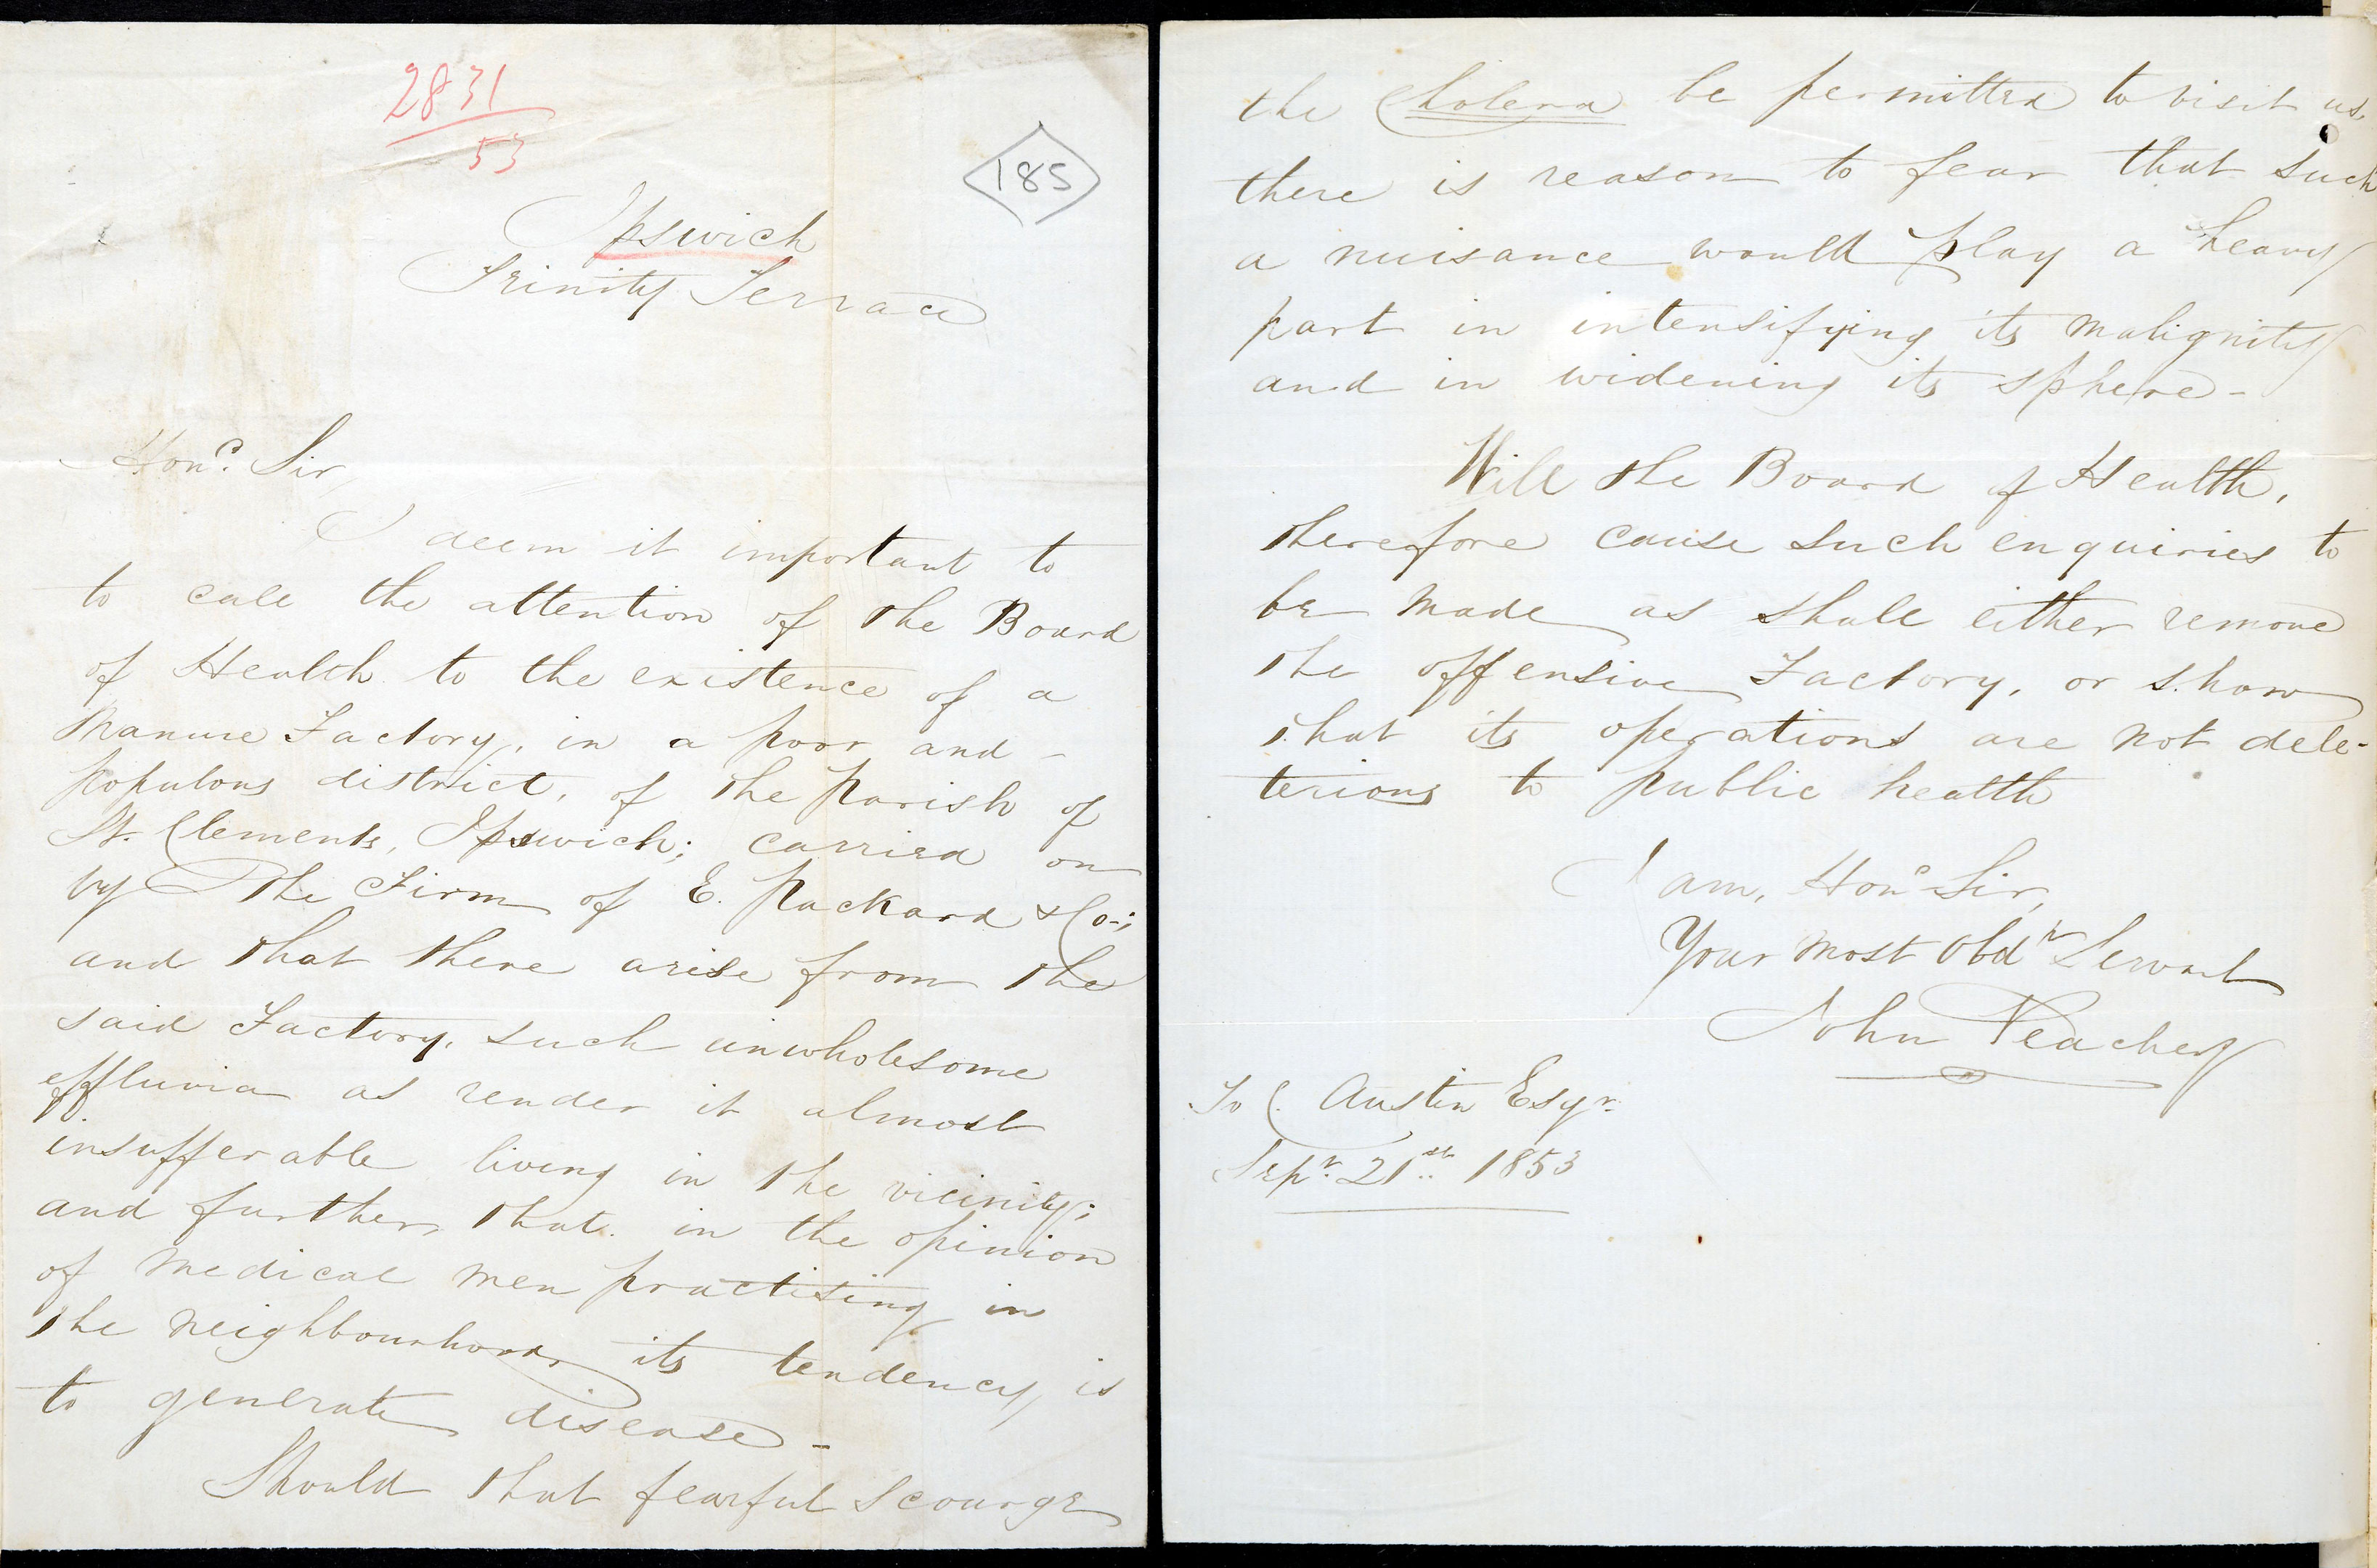 2831
53
185
Ipswich
Trinity Terrace
Hond. Sir,
I deem it important to
to call the attention of the Board
of Health to the existence of a
Manure Factory, in a poor and -
populous district, of the Parish of
St. Clements, Ipswich; carried on
by the Firm of E. Packard & Co-;
and that there arise from the
said Factory, such unwholesome
effluvia as render it almost
insufferable living in the vicinity;
and further, that in the opinion
of medical men practising in
the neighbourhood its tendency is
to generate disease -
Should that fearful scourge
the Cholera be permitted to visit us,
there is reason to fear that such
a nuisance would play a heavy
part in intensifying its malignity
and in widening its sphere -
Will the Board of Health,
therefore cause such enquiries to
be made as shall either remove
the offensive Factory, or show
that its operations are not dele-
terious to public health
I am, Hond Sir,
Your most Obdt Servant
John Peachey
To C. Austin Esqr.
Sepr. 21st 1853